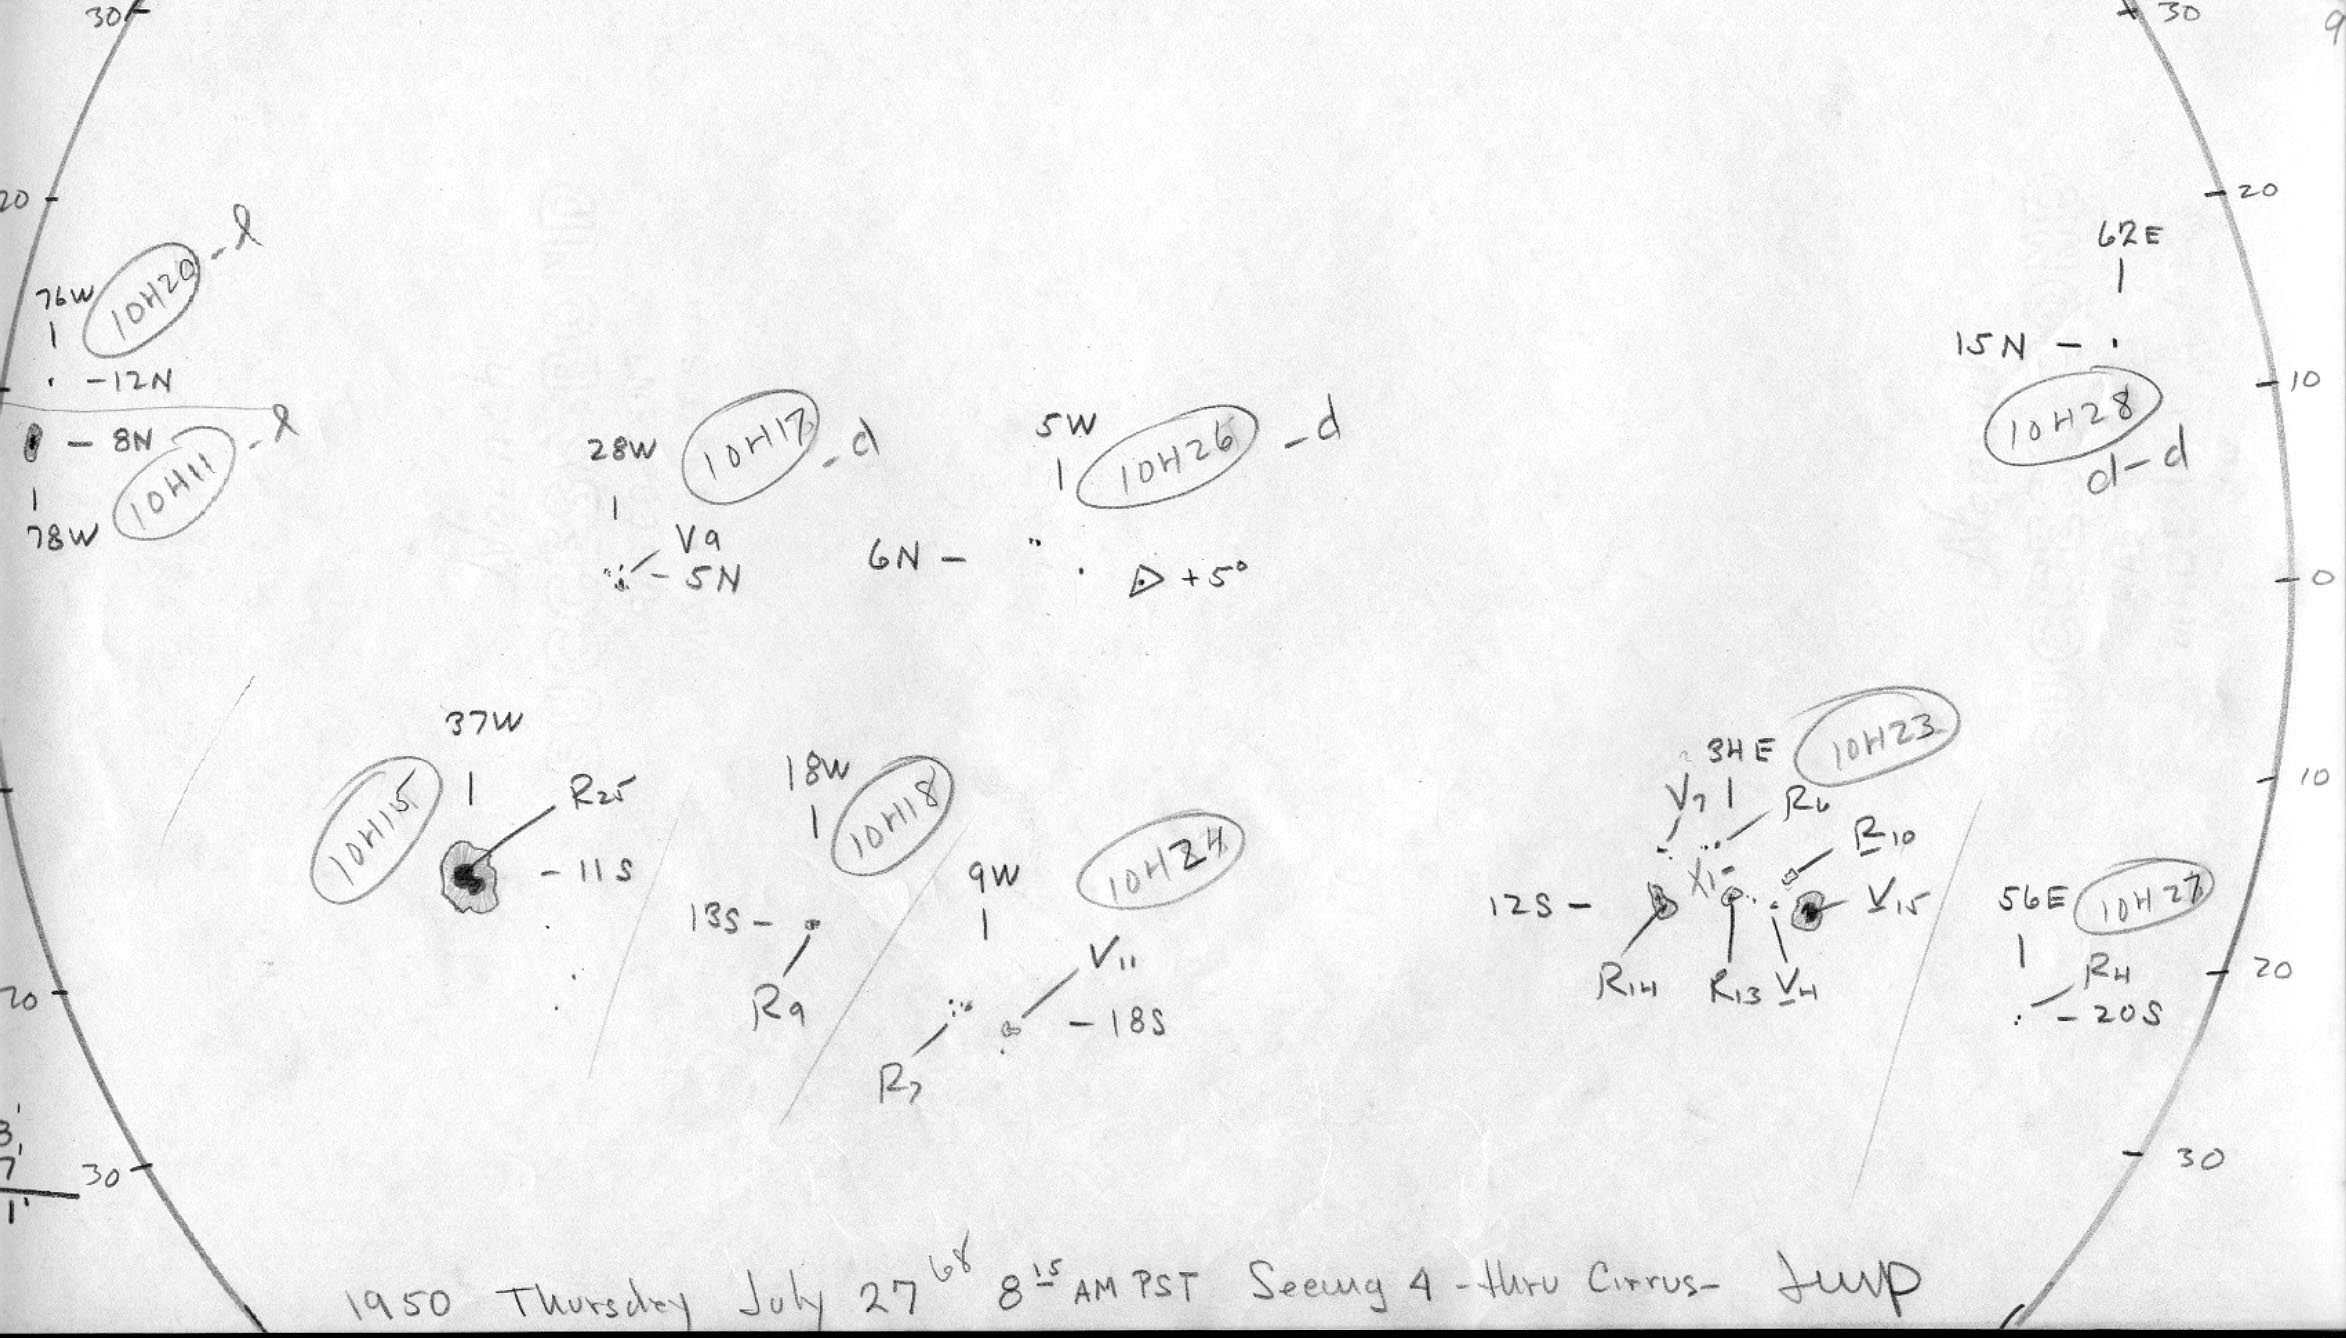 30
30
9
20
20
62E
76W
10H20 - l
15N -
-12N
10
- 8N
10H11 - l
10H28
d-d
78W
28W
10H17 - d
5W
10H26 - d
V9
- 5N
6N -
△ +5°
0
37W
10H15
R25
- 11S
18W
10H18
13S -
R9
9W
10H24
V11
- 18S
R7
34E
10H23
V7
R6
R10
X1
12S -
V15
R14
R13
V4
10
56E
10H27
R4
- 20S
20
20
30
30
1950 Thursday July 27 68 8 15 AM PST Seeing 4 - thru Cirrus -